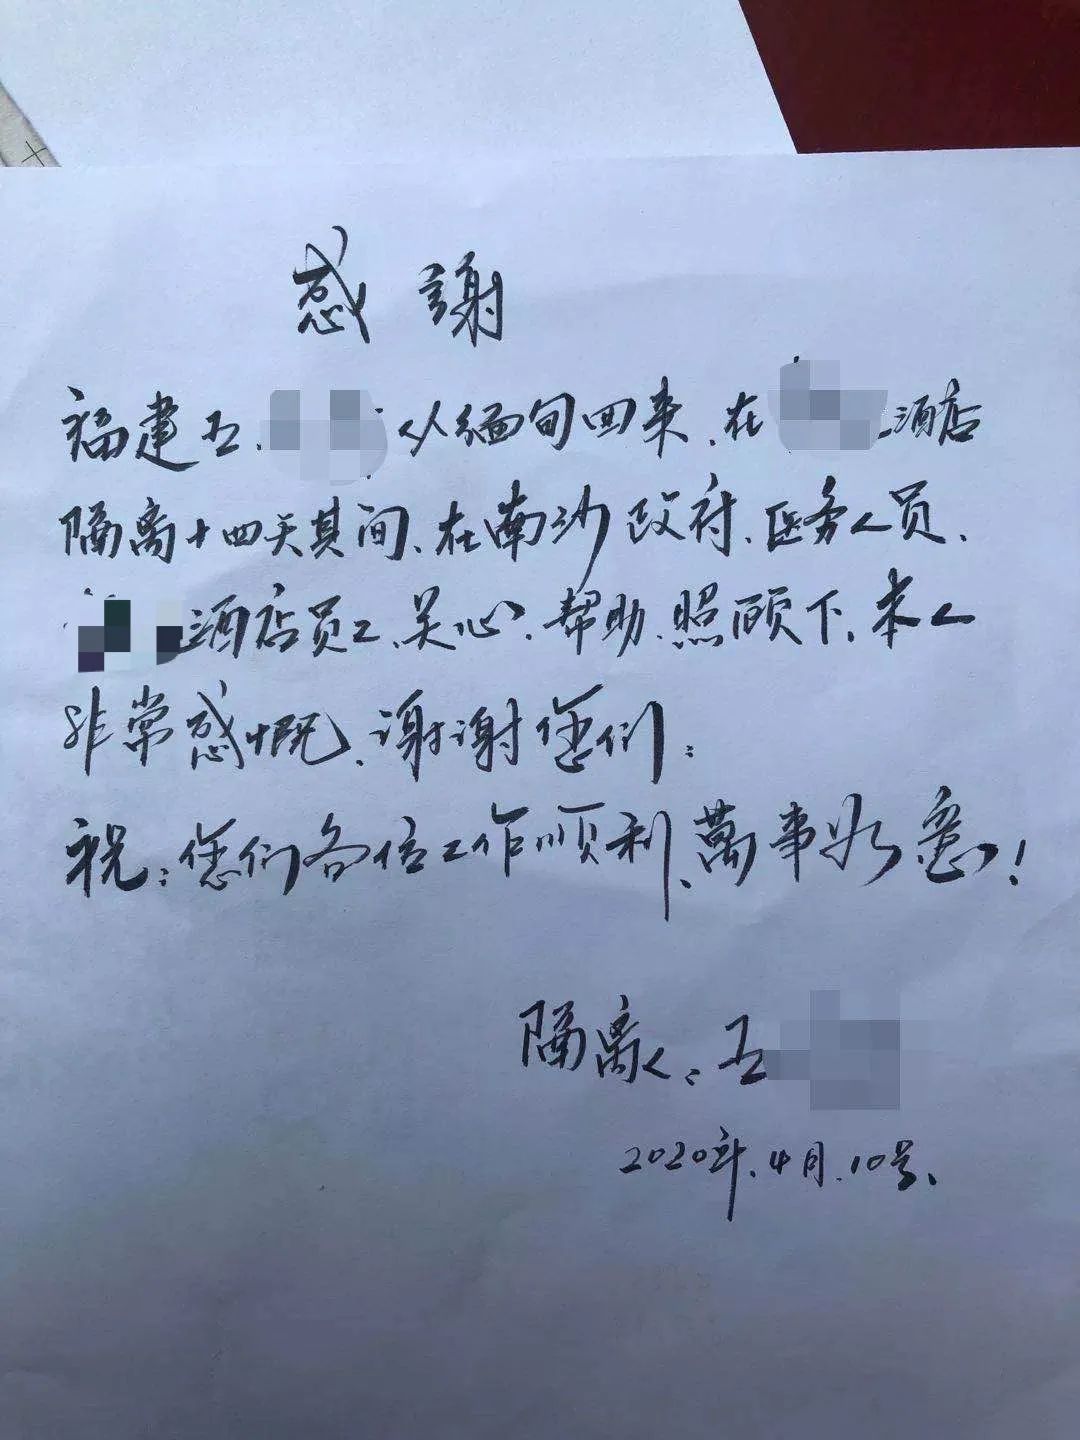 感謝
福建王、从缅甸回来、在酒店
隔离十四天其间、在南沙政府、医务人员、
酒店员工、关心、帮助、照顾下、本人
非常感慨、谢谢您们：
祝：您们各位工作顺利、萬事如意！
隔离人：王
2020年、4月、10号、